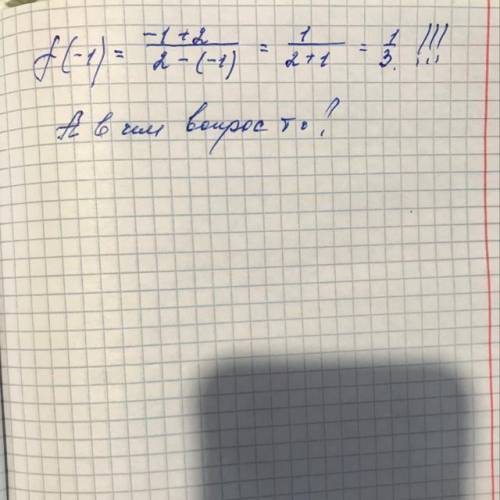 f(-1) = \frac{-1+2}{2-(-1)} = \frac{1}{2+1} = \frac{1}{3}. !!!
А в чем вопрос то?